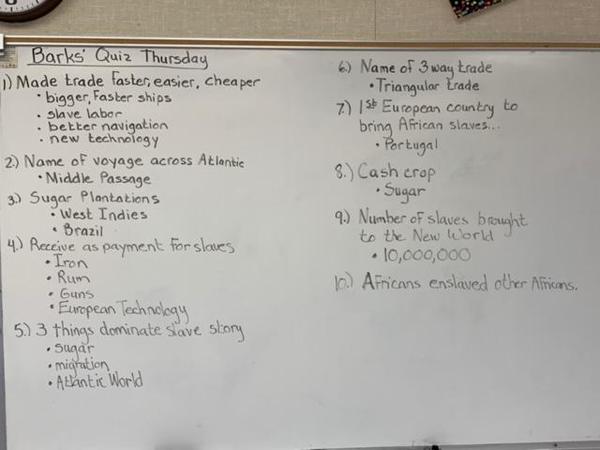 Barks' Quiz Thursday
1) Made trade faster, easier, cheaper
• bigger, faster ships
• slave labor
• better navigation
• new technology
2.) Name of voyage across Atlantic
• Middle Passage
3.) Sugar Plantations
• West Indies
• Brazil
4.) Receive as payment for slaves
• Iron
• Rum
• Guns
• European Technology
5.) 3 things dominate slave story
• sugar
• migration
• Atlantic World
6.) Name of 3 way trade
• Triangular trade
7.) 1st European country to
bring African slaves...
• Portugal
8.) Cash crop
• Sugar
9.) Number of slaves brought
to the New World
• 10,000,000
10.) Africans enslaved other Africans.